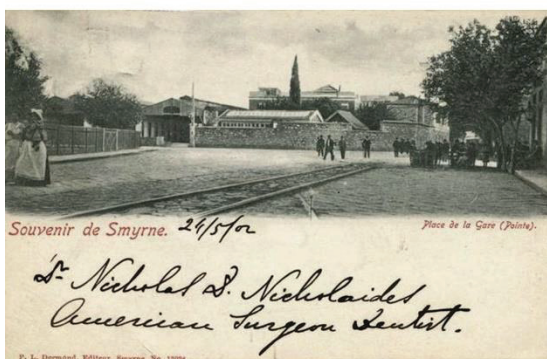 Souvenir de Smyrne. 24/5/02
Place de la Gare (Pointe).
Dr Nicholas D. Nicholaides
American Surgeon Dentist.
P. L. Dermond, Editeur, Smyrne, No.